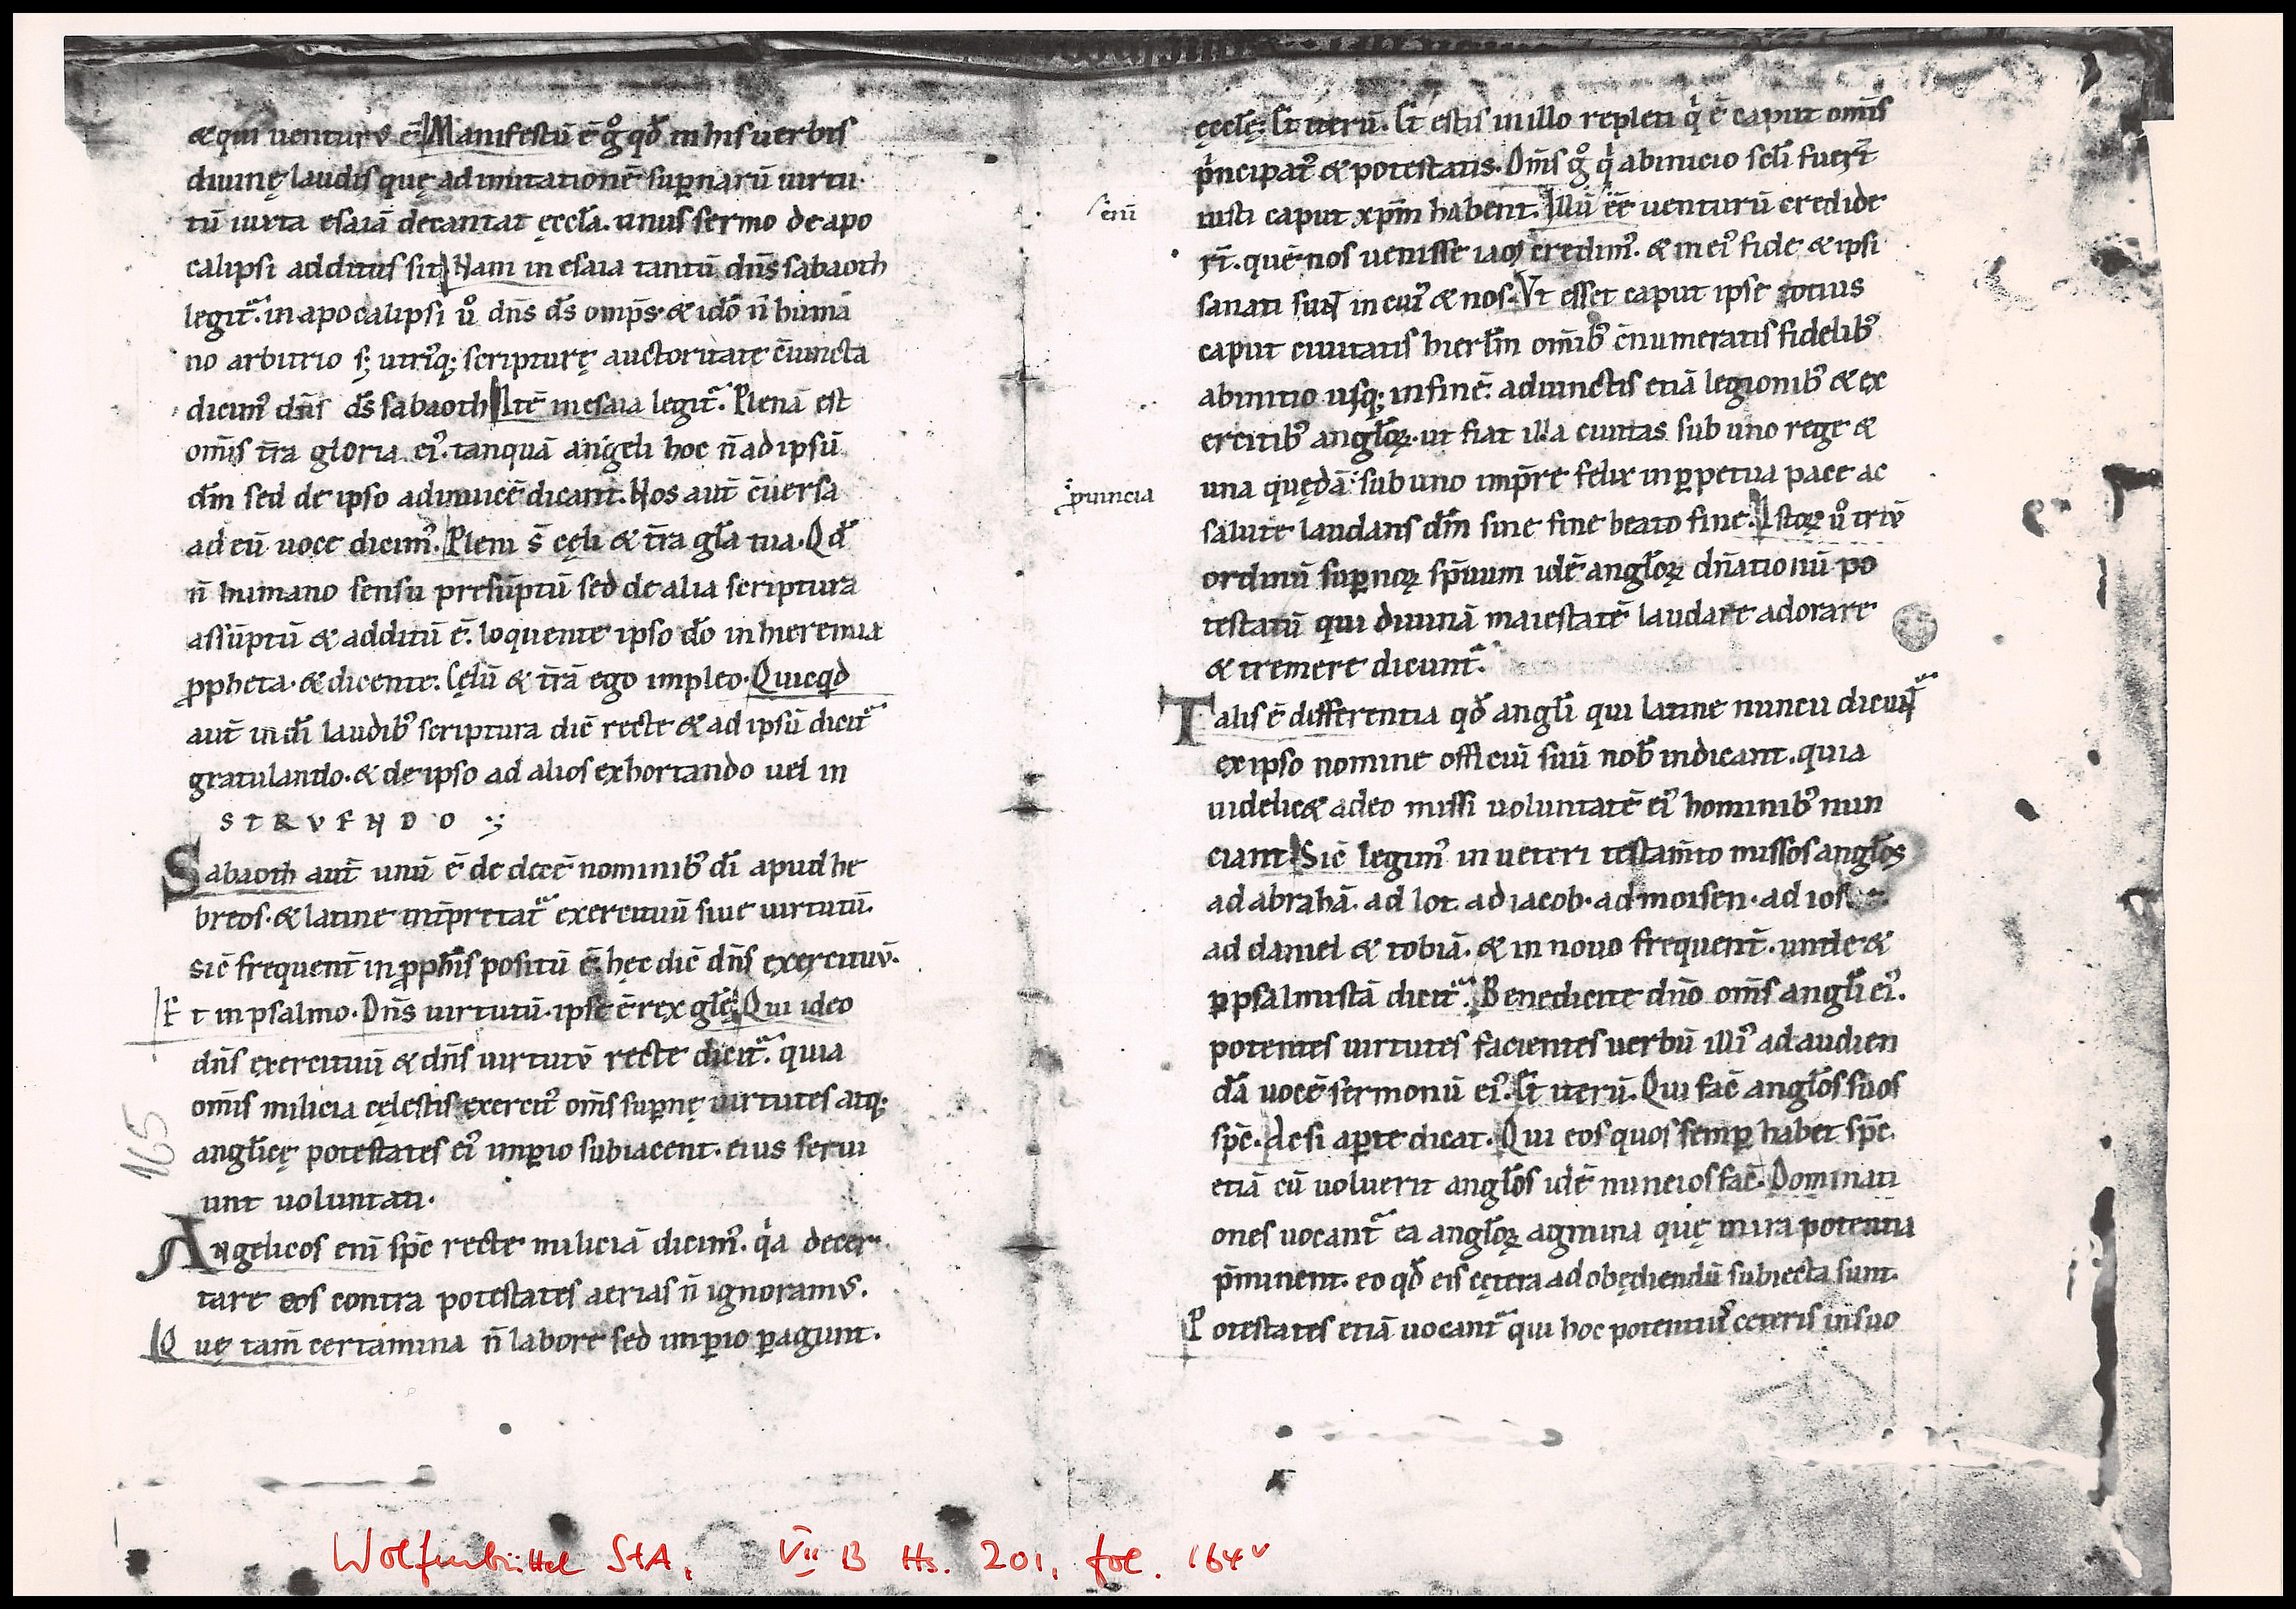 & qui venturꝰ ē. Manifestū ē gͦ qđ in his uerbis
diuinę laudis quę ad imitationē suꝑnarū uirtu
tū iuxta esaiā decantat ęccła. unus sermo de apo
calipsi additus sit. Nam in esaia tantū dn̄s sabaoth
legit᷑. in apocalipsi ů dn̄s ds̄ omp̄s. & idō n̄ huma
no arbitrio s; utriꝰq; scripturę auctoritate c̄iuncta
dicimꝰ dn̄s ds̄ sabaoth. Itē in esaia legit᷑. Plena est
om̄is t̄ra gloria eiꝰ. tanquā angeli hoc n̄ ad ipsū
dm̄ sed de ipso adinuicē dicant. Nos aut̄ c̄uersa
ad eū uoce dicimꝰ. Pleni s̄ cęli & t̄ra gła tua. Qđ
n̄ humano sensu presūptū sed de alia scriptura
assūptū & additū ē. loquente ipso do̅ in hieremia
ꝓpheta. & dicente. Cęlū & t̄rā ego impleo. Quicqd
aut̄ in di̅ laudibꝰ scriptura dic̄ recte & ad ipsū dicit᷑
gratulando. & de ipso ad alios exhortando uel in
STRVENDO .;
Sabaoth aut̄ unū ē de decē nominibꝰ di̅ apud he
breos. & latine int̄pretat᷑ exercituū siue uirtutū.
sic̄ frequent̄ in ꝓphīs positū ē. hęc dic̄ dn̄s exercituū.
Et in psalmo. Dn̄s uirtutū. ipse ē rex głę. Qui ideo
dn̄s exercituū & dn̄s uirtutū recte dicit᷑. quia
om̄is milicia cęlestis exercitꝰ om̄s suꝑnę uirtutes atq;
anglicę potestates eiꝰ imꝑio subiacent. eius serui
unt uoluntati.
Angelicos eni̅ sp̄c recte miliciā dicimꝰ. qͥa decer
tare eos contra potestates aerias n̄ ignoramꝰ.
Quę tam̄ certamina n̄ labore sed imꝑio ꝑagunt.
165
ęcclę. Et iterū. Et estis in illo repleti qͥ ē caput om̄is
pͥncipatꝰ & potestatis. Om̄s gͦ qͥ ab inicio scl̄i fuer̄t
iusti caput xp̄m habent. Illū eē uenturū credide
r̄t. quē nos uenisse iā credimꝰ. & in eiꝰ fide & ipsi
sanati sunt in cuiꝰ & nos. Vt esset caput ipse totius
caput ciuitatis hierłm om̄ibꝰ c̄numeratis fidelibꝰ
ab initio usq; in finē. adiunctis etiā legionibꝰ & ex
ercitibꝰ angłoꝝ. ut fiat illa ciuitas sub uno rege &
una quędā sub uno imp̄re felix in ꝑpetua pace ac
salute laudans dm̄ sine fine beato fine. Istoꝝ ů triū
ordinū suꝑnoꝝ sp̄uum idē angłoꝝ dn̄ationū po
testatū qui diuinā maiestatē laudare adorare
& tremere dicunt᷑.
s eni̅
ꝓuincia
Talis ē differentia qđ angłi qui latine nuncii dicunt᷑
ex ipso nomine officiū suū nob̄ indicant. quia
uidelic& a deo missi uoluntatē eiꝰ hominibꝰ nun
ciant. Sic̄ legimꝰ in ueteri testam̄to missos angłos
ad abrahā. ad lot. ad iacob. ad moisen. ad ios
ad daniel & tobiā. & in nouo frequent̄. unde &
ꝑ psalmistā dicit᷑. Benedicite dn̄o om̄s angłi eiꝰ.
potentes uirtutes facientes uerbū illiꝰ ad audien
dā uocē sermonū eiꝰ. Et iterū. Qui fac̄ angłos suos
sp̄c. ac si aꝑte dicat. Qui eos quos semꝑ habet sp̄c.
etiā cū uoluerit angłos idē nuncios fac̄. Dominati
ones uocant᷑ ea angłoꝝ agmina quę mira potentia
p̄minent. eo qđ eis cętera ad obędiendū subiecta sunt.
Potestates etiā uocant᷑ qui hoc potentiꝰ ceteris in suo
Wolfenbüttel StA, VII B Hs. 201, fol. 164v